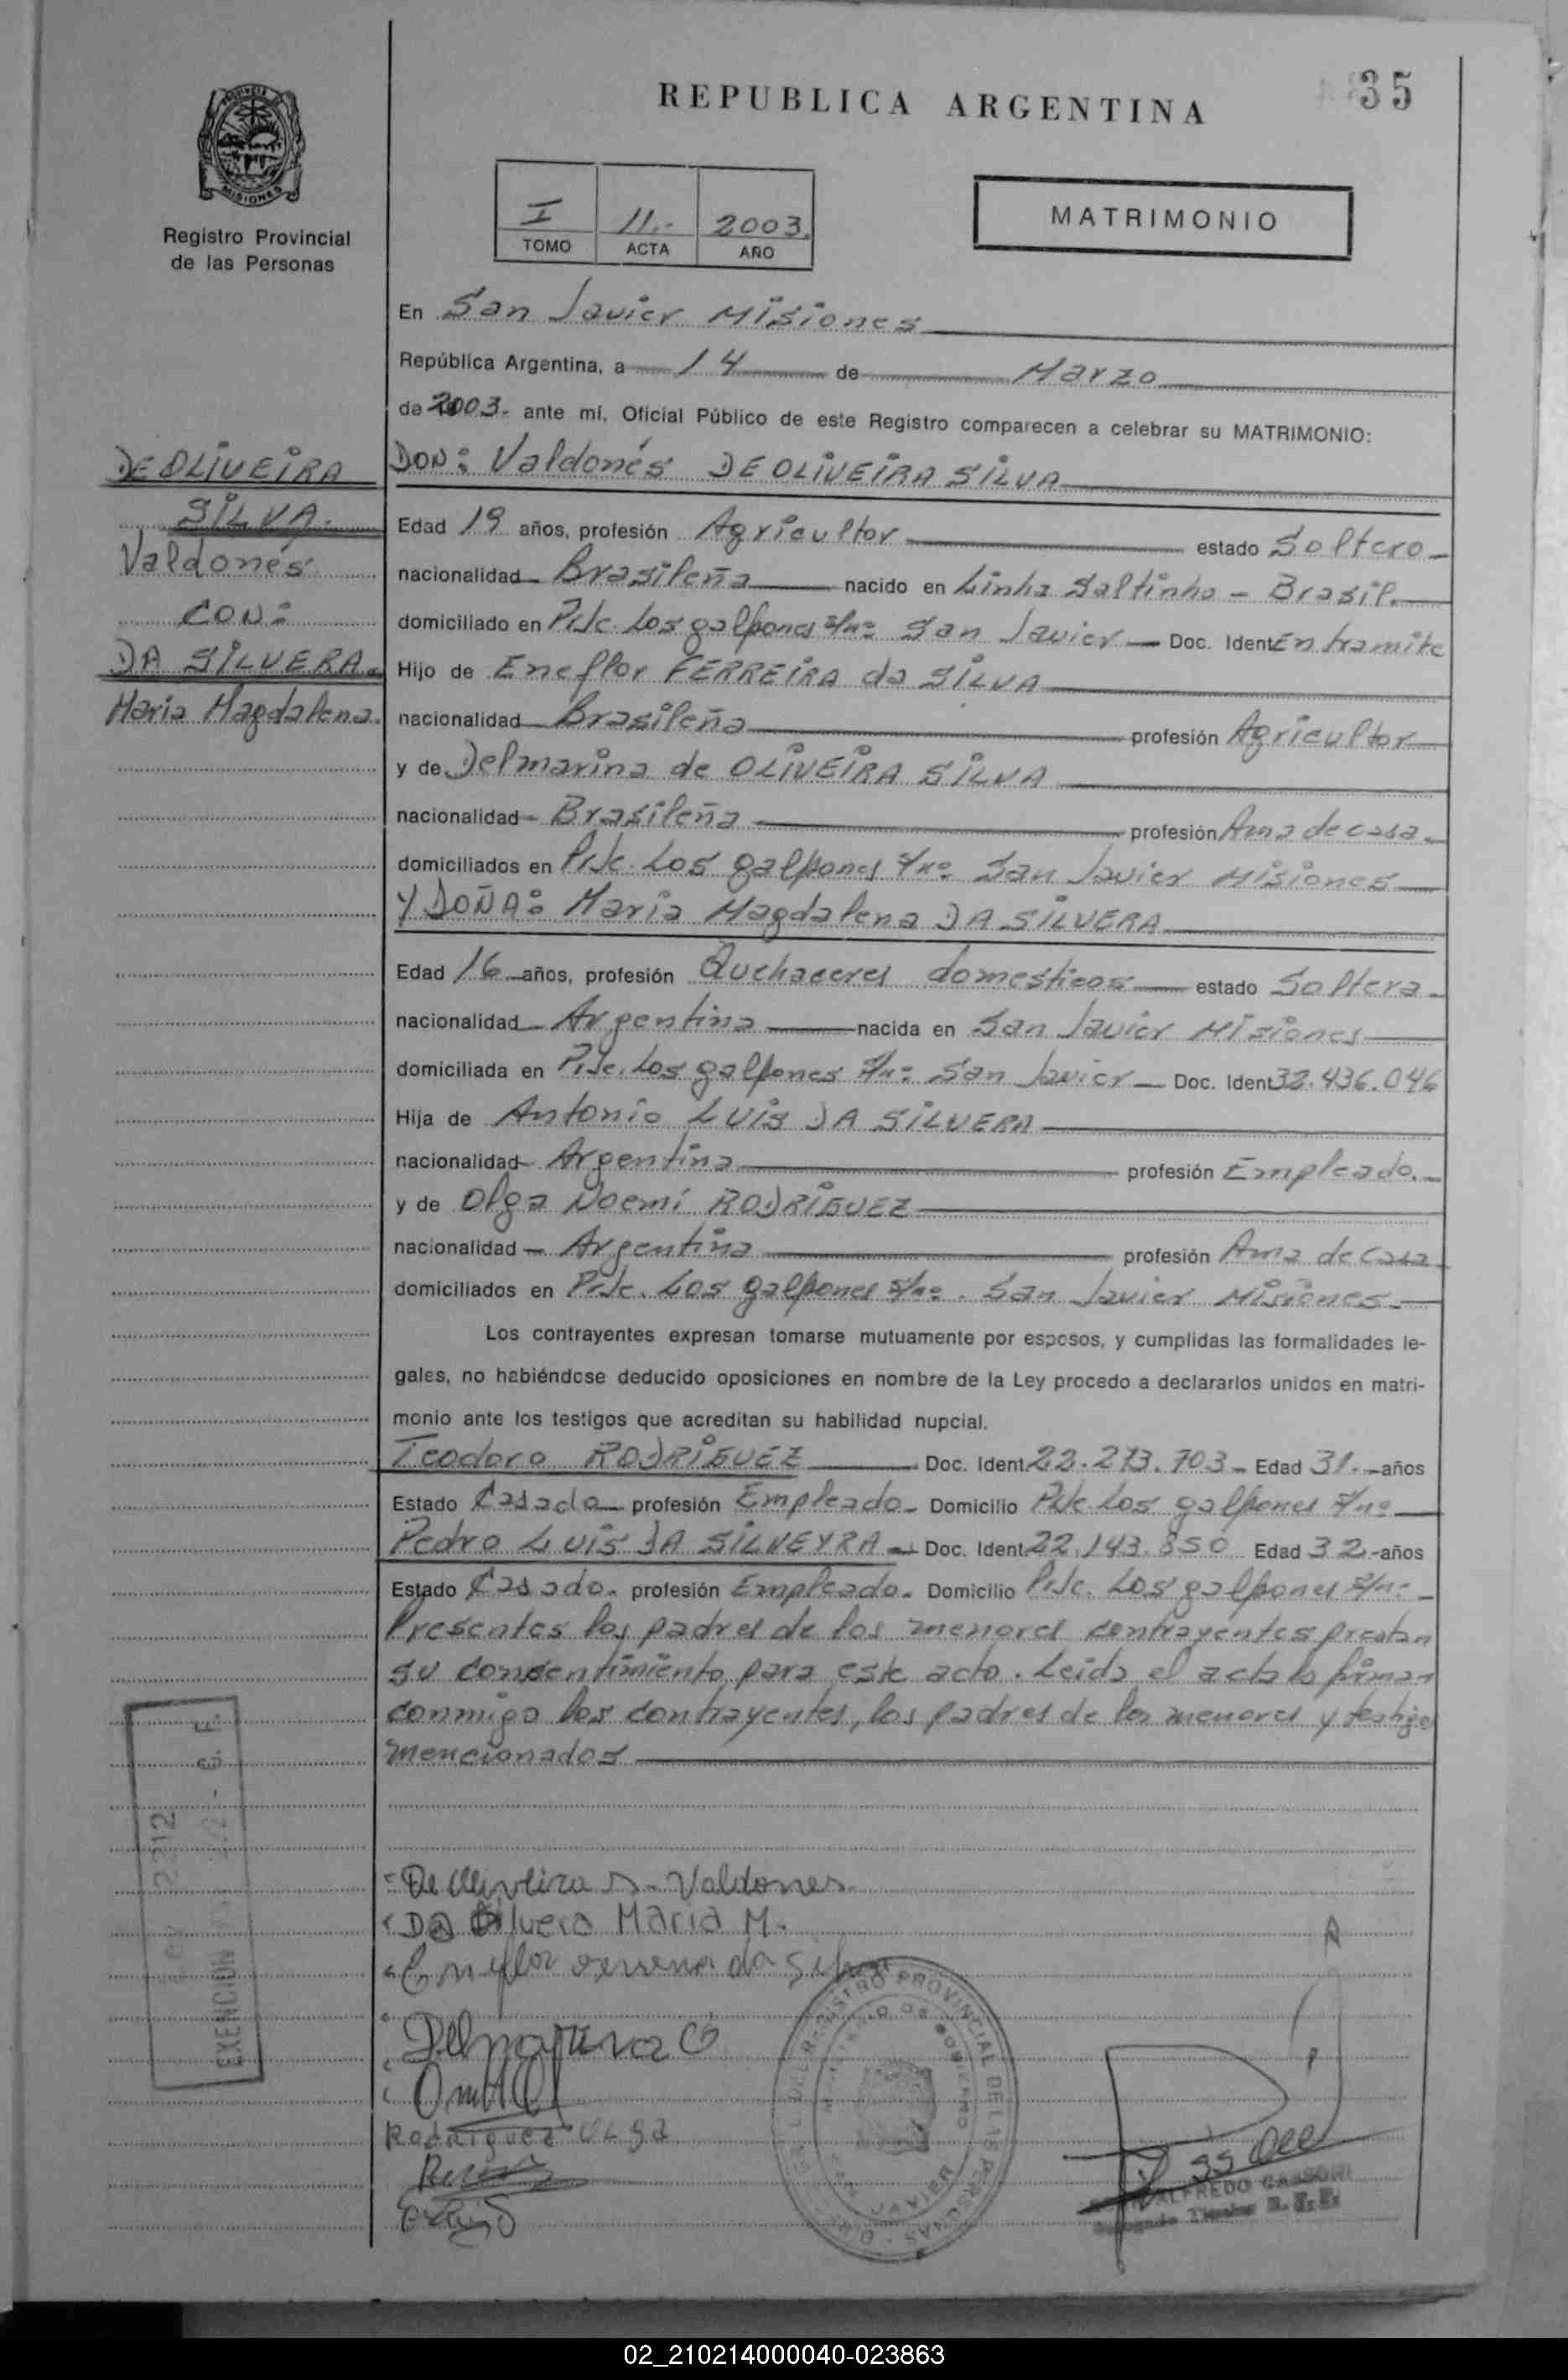 REPUBLICA ARGENTINA
35
PROVINCIA DE
MISIONES
Registro Provincial
de las Personas
I 11.- 2003.
TOMO ACTA AÑO
MATRIMONIO
En San Javier Misiones
República Argentina, a 14 de Marzo
de 2003.- ante mí, Oficial Público de este Registro comparecen a celebrar su MATRIMONIO:
DE OLIVEIRA
SILVA.
Valdonés
CON:
DA SILVERA.
Maria Magdalena.
DON: Valdonés DE OLIVEIRA SILVA
Edad 19 años, profesión Agricultor estado Soltero
nacionalidad Brasileña nacido en Linha Saltinho - Brasil.
domiciliado en Pje. Los galpones s/nº San Javier Doc. Ident En tramite
Hijo de Eneflor FERREIRA da SILVA
nacionalidad Brasileña profesión Agricultor
y de Delmarina de OLIVEIRA SILVA
nacionalidad Brasileña profesión Ama de casa.
domiciliados en Pje. Los galpones s/nº San Javier Misiones
Y DOÑA: Maria Magdalena DA SILVERA
Edad 16 años, profesión Quehaceres domesticos estado Soltera
nacionalidad Argentina nacida en San Javier Misiones
domiciliada en Pje. Los galpones s/nº San Javier Doc. Ident 32.436.046
Hija de Antonio LUIS DA SILVERA
nacionalidad Argentina profesión Empleado.
y de Olga Noemí RODRIGUEZ
nacionalidad Argentina profesión Ama de casa
domiciliados en Pje. Los galpones s/nº. San Javier Misiones.
Los contrayentes expresan tomarse mutuamente por esposos, y cumplidas las formalidades le-
gales, no habiéndose deducido oposiciones en nombre de la Ley procedo a declararlos unidos en matri-
monio ante los testigos que acreditan su habilidad nupcial.
Teodoro RODRIGUEZ Doc. Ident. 22.273.703 Edad 31. años
Estado Casado profesión Empleado Domicilio Pje. Los galpones s/nº
Pedro LUIS DA SILVEYRA Doc. Ident. 22.143.850 Edad 32 años
Estado Casado. profesión Empleado. Domicilio Pje. Los galpones s/nº
Presentes los padres de los menores contrayentes prestan
su consentimiento para este acto. Leida el acta la firman
conmigo los contrayentes, los padres de los menores y testigos
mencionados
De Oliveira S. Valdones
Da Silvera Maria M.
Eneflor da Silva
Delmarina
Rodriguez Olga
REGISTRO PROVINCIAL DE LAS PERSONAS
MINISTERIO DE GOBIERNO
EXENCION
ALFREDO
02_210214000040-023863